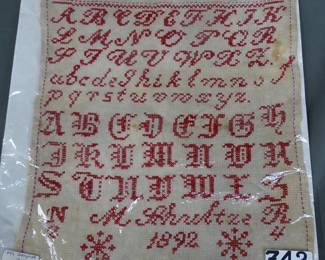 A B C D E F G H I K
L M N O P Q R
S T U V W X Z
a b c d e f g h i k l m n o
p q r s t u v w x y z.
A B C D E F G H
I K L M N O R
S T U D W I Z
M Schultze
1892
342